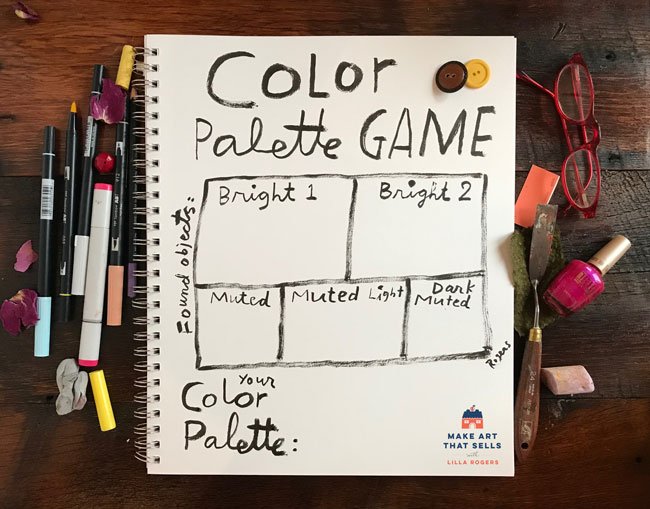 COLOR
Palette GAME
Found objects:
Bright 1
Bright 2
Muted
Muted Light
Dark
Muted
Rogers
Your
Color
Palette:
MAKE ART
THAT SELLS
with
LILLA ROGERS